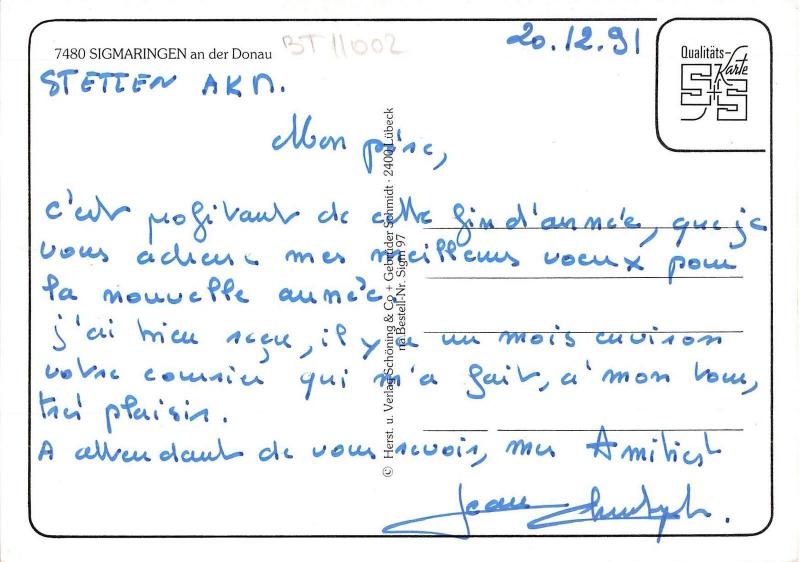 7480 SIGMARINGEN an der Donau
BT 11002
20.12.91
Qualitäts-
Karte
S+S
STETTEN AKM.
Mon père,
c'est profitant de cette fin d'année, que je
vous adresse mes meilleurs voeux pour
la nouvelle année.
j'ai bien reçu, il y a un mois environ
votre courrier qui m'a fait, a' mon tour,
très plaisir.
A attendant de vous revoir, mes Amitiés
Jean Christophe.
© Herst. u. Verlag Schöning & Co + Gebrüder Schmidt · 2400 Lübeck
na Bestell-Nr. Sigm 97